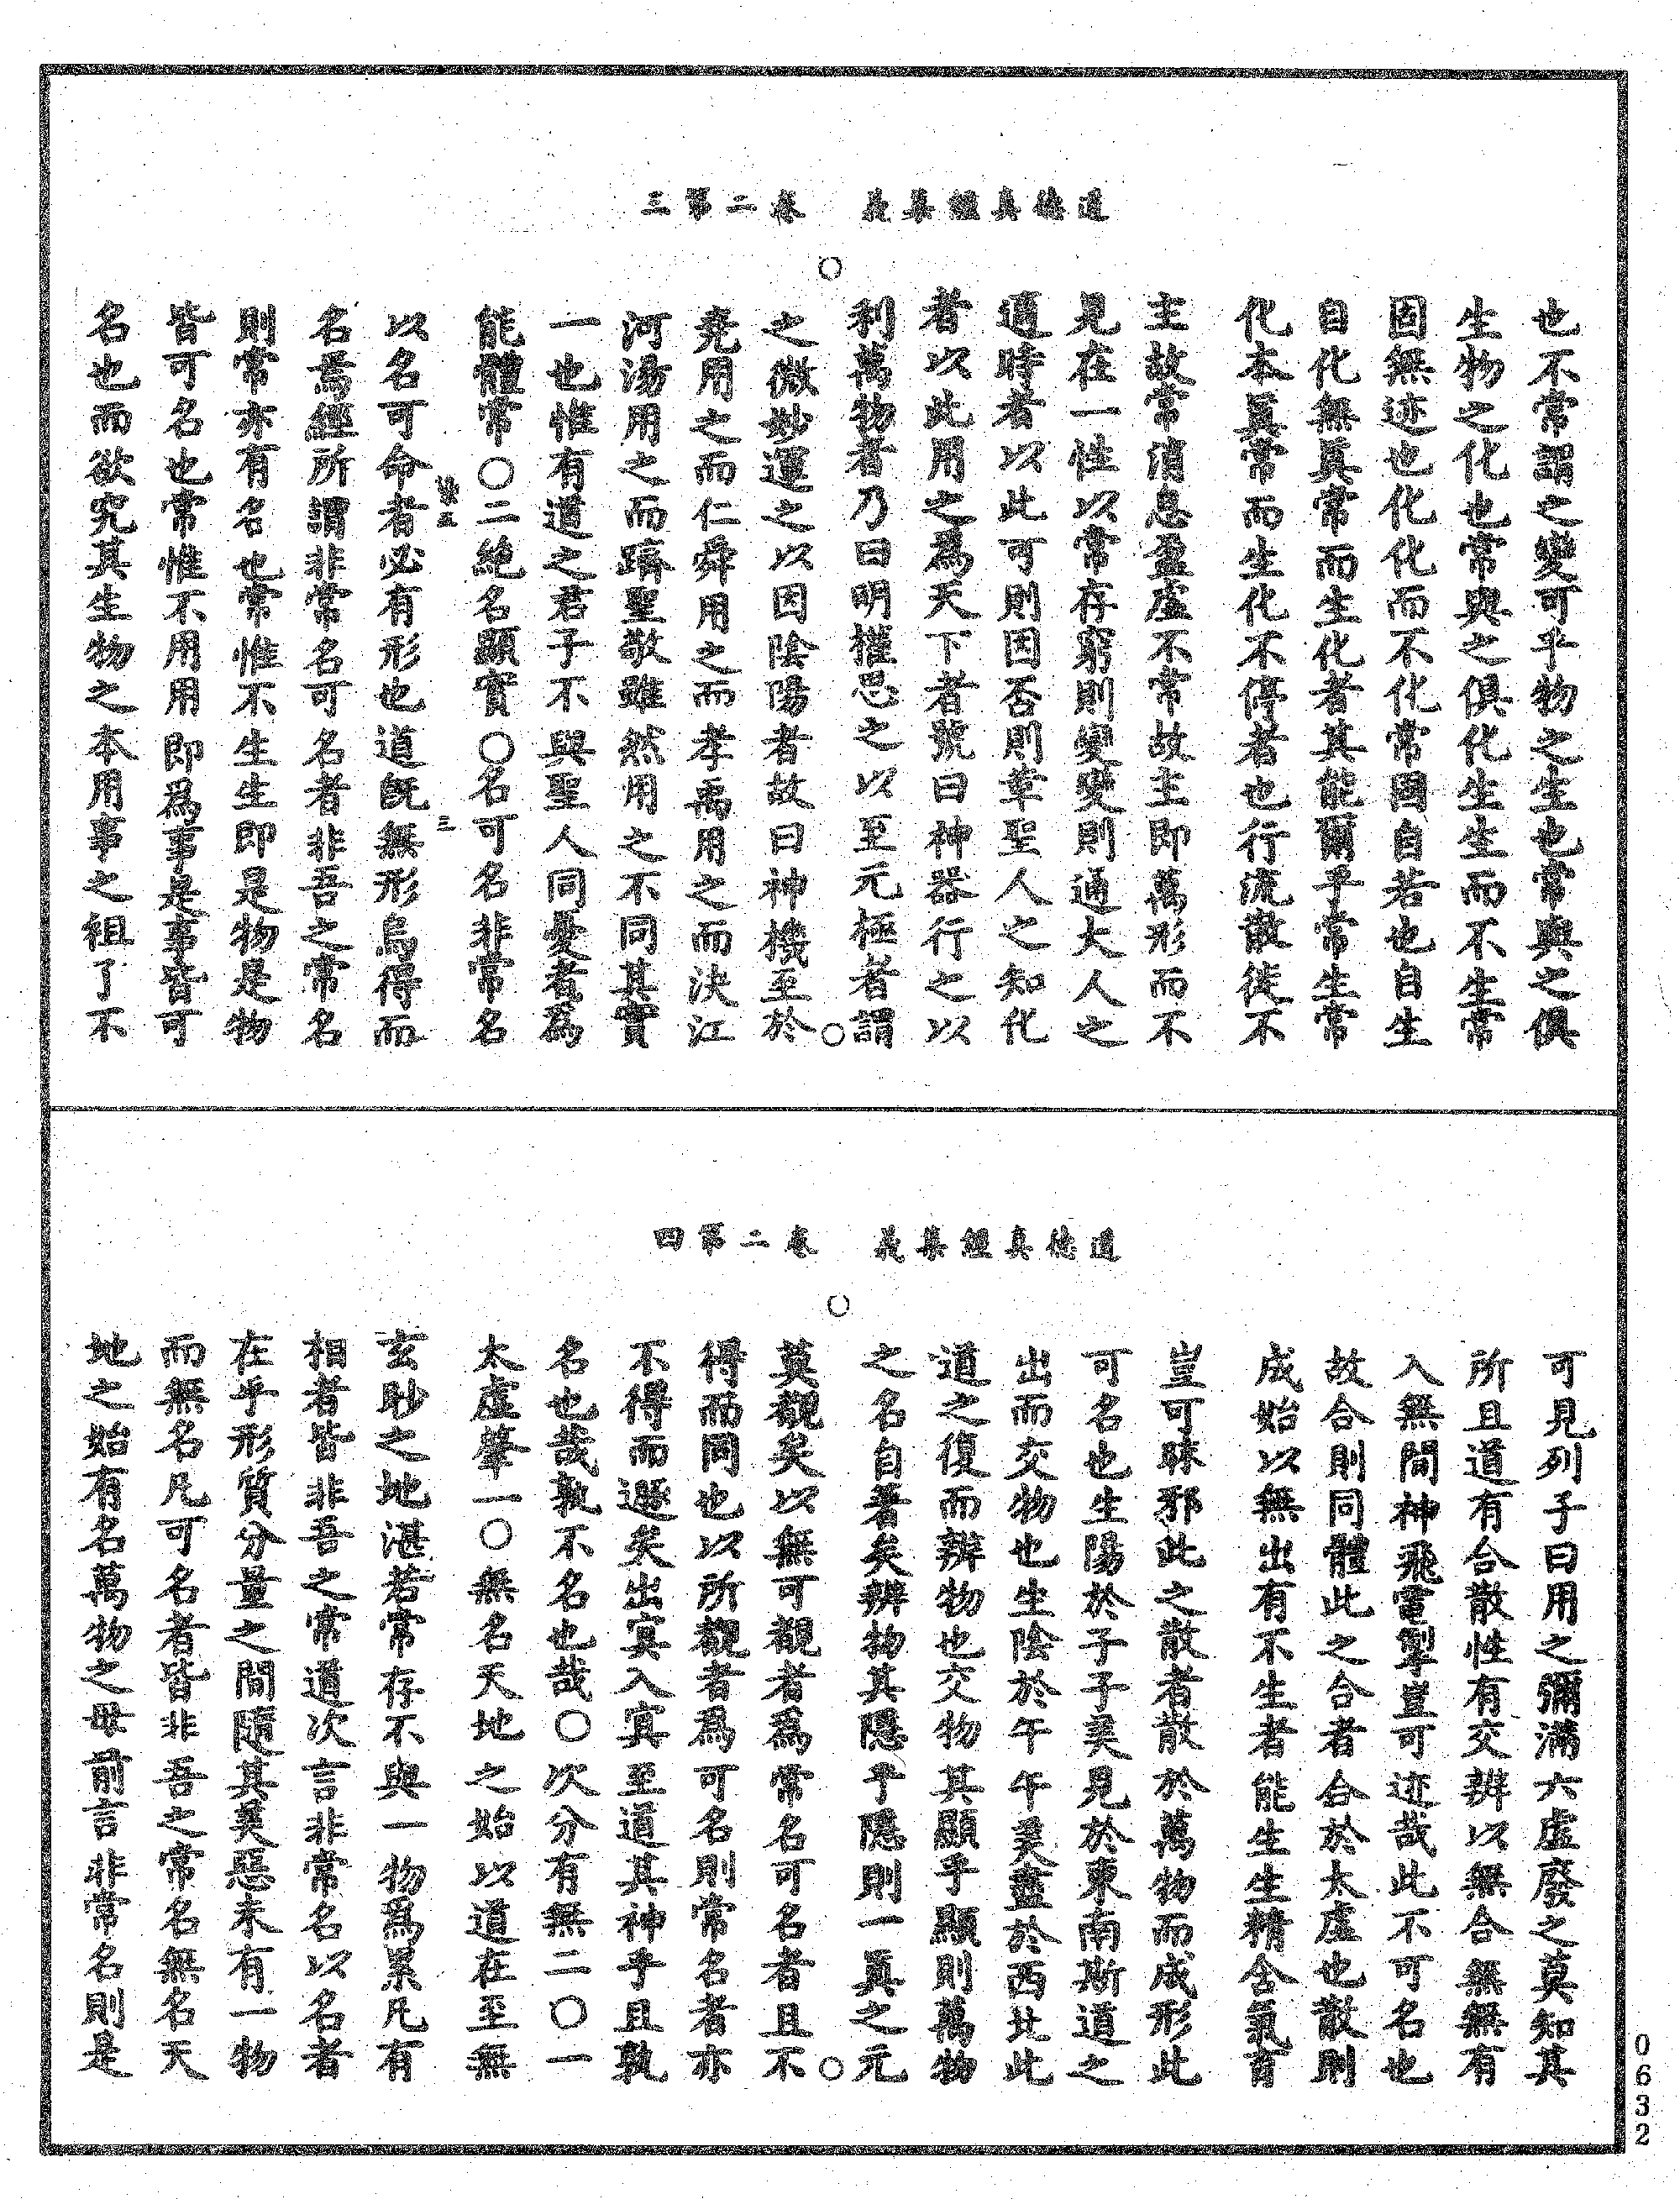 道德真經集義　卷二第三
也不常謂之變可乎物之生也常與之俱
生物之化也常與之俱化生生而不生常
固無迹也化化而不化常固自若也自生
自化無真常而生化者其能爾乎常生常
化本真常而生化不停者也行流散徙不
主故常消息盈虛不常故主即萬形而不
見在一性以常存窮則變變則通大人之
適時者以此可則因否則革聖人之知化
者以此用之為天下者號曰神器行之以
利萬物者乃曰明權思之以至元極者謂
之微妙運之以因陰陽者故曰神機至於
堯用之而仁舜用之而孝禹用之而決江
河湯用之而躋聖敬雖然用之不同其實
一也惟有道之君子不與聖人同憂者為
能體常○二絶名顯實○名可名非常名
以名可命者必有形也道既無形烏得而
名焉經所謂非常名可名者非吾之常名
則常亦有名也常惟不生生即是物是物
皆可名也常惟不用用即為事是事皆可
名也而欲究其生物之本用事之祖了不
三
道德真經集義　卷二第四
可見列子曰用之彌滿六虛廢之莫知其
所且道有合散性有交辨以無合無無有
入無間神飛電掣豈可迹哉此不可名也
故合則同體此之合者合於太虛也散則
成始以無出有不生者能生生精含氣首
豈可昧邪此之散者散於萬物而成形此
可名也生陽於子子美見於東南斯道之
出而交物也生陰於午午美盡於西北此
道之復而辨物也交物其顯乎顯則萬物
之名自著矣辨物其隱乎隱則一真之元
莫觀矣以無可觀者為常名可名者且不
得而同也以所觀者為可名則常名者亦
不得而遯矣出寞入寞至道其神乎且孰
名也哉孰不名也哉○次分有無二○一
太虛肇一○無名天地之始以道在至無
玄眇之地湛若常存不與一物為累凡有
相者皆非吾之常道次言非常名以名者
在乎形質分量之間隨其美惡未有一物
而無名凡可名者皆非吾之常名無名天
地之始有名萬物之母前言非常名則是
0632